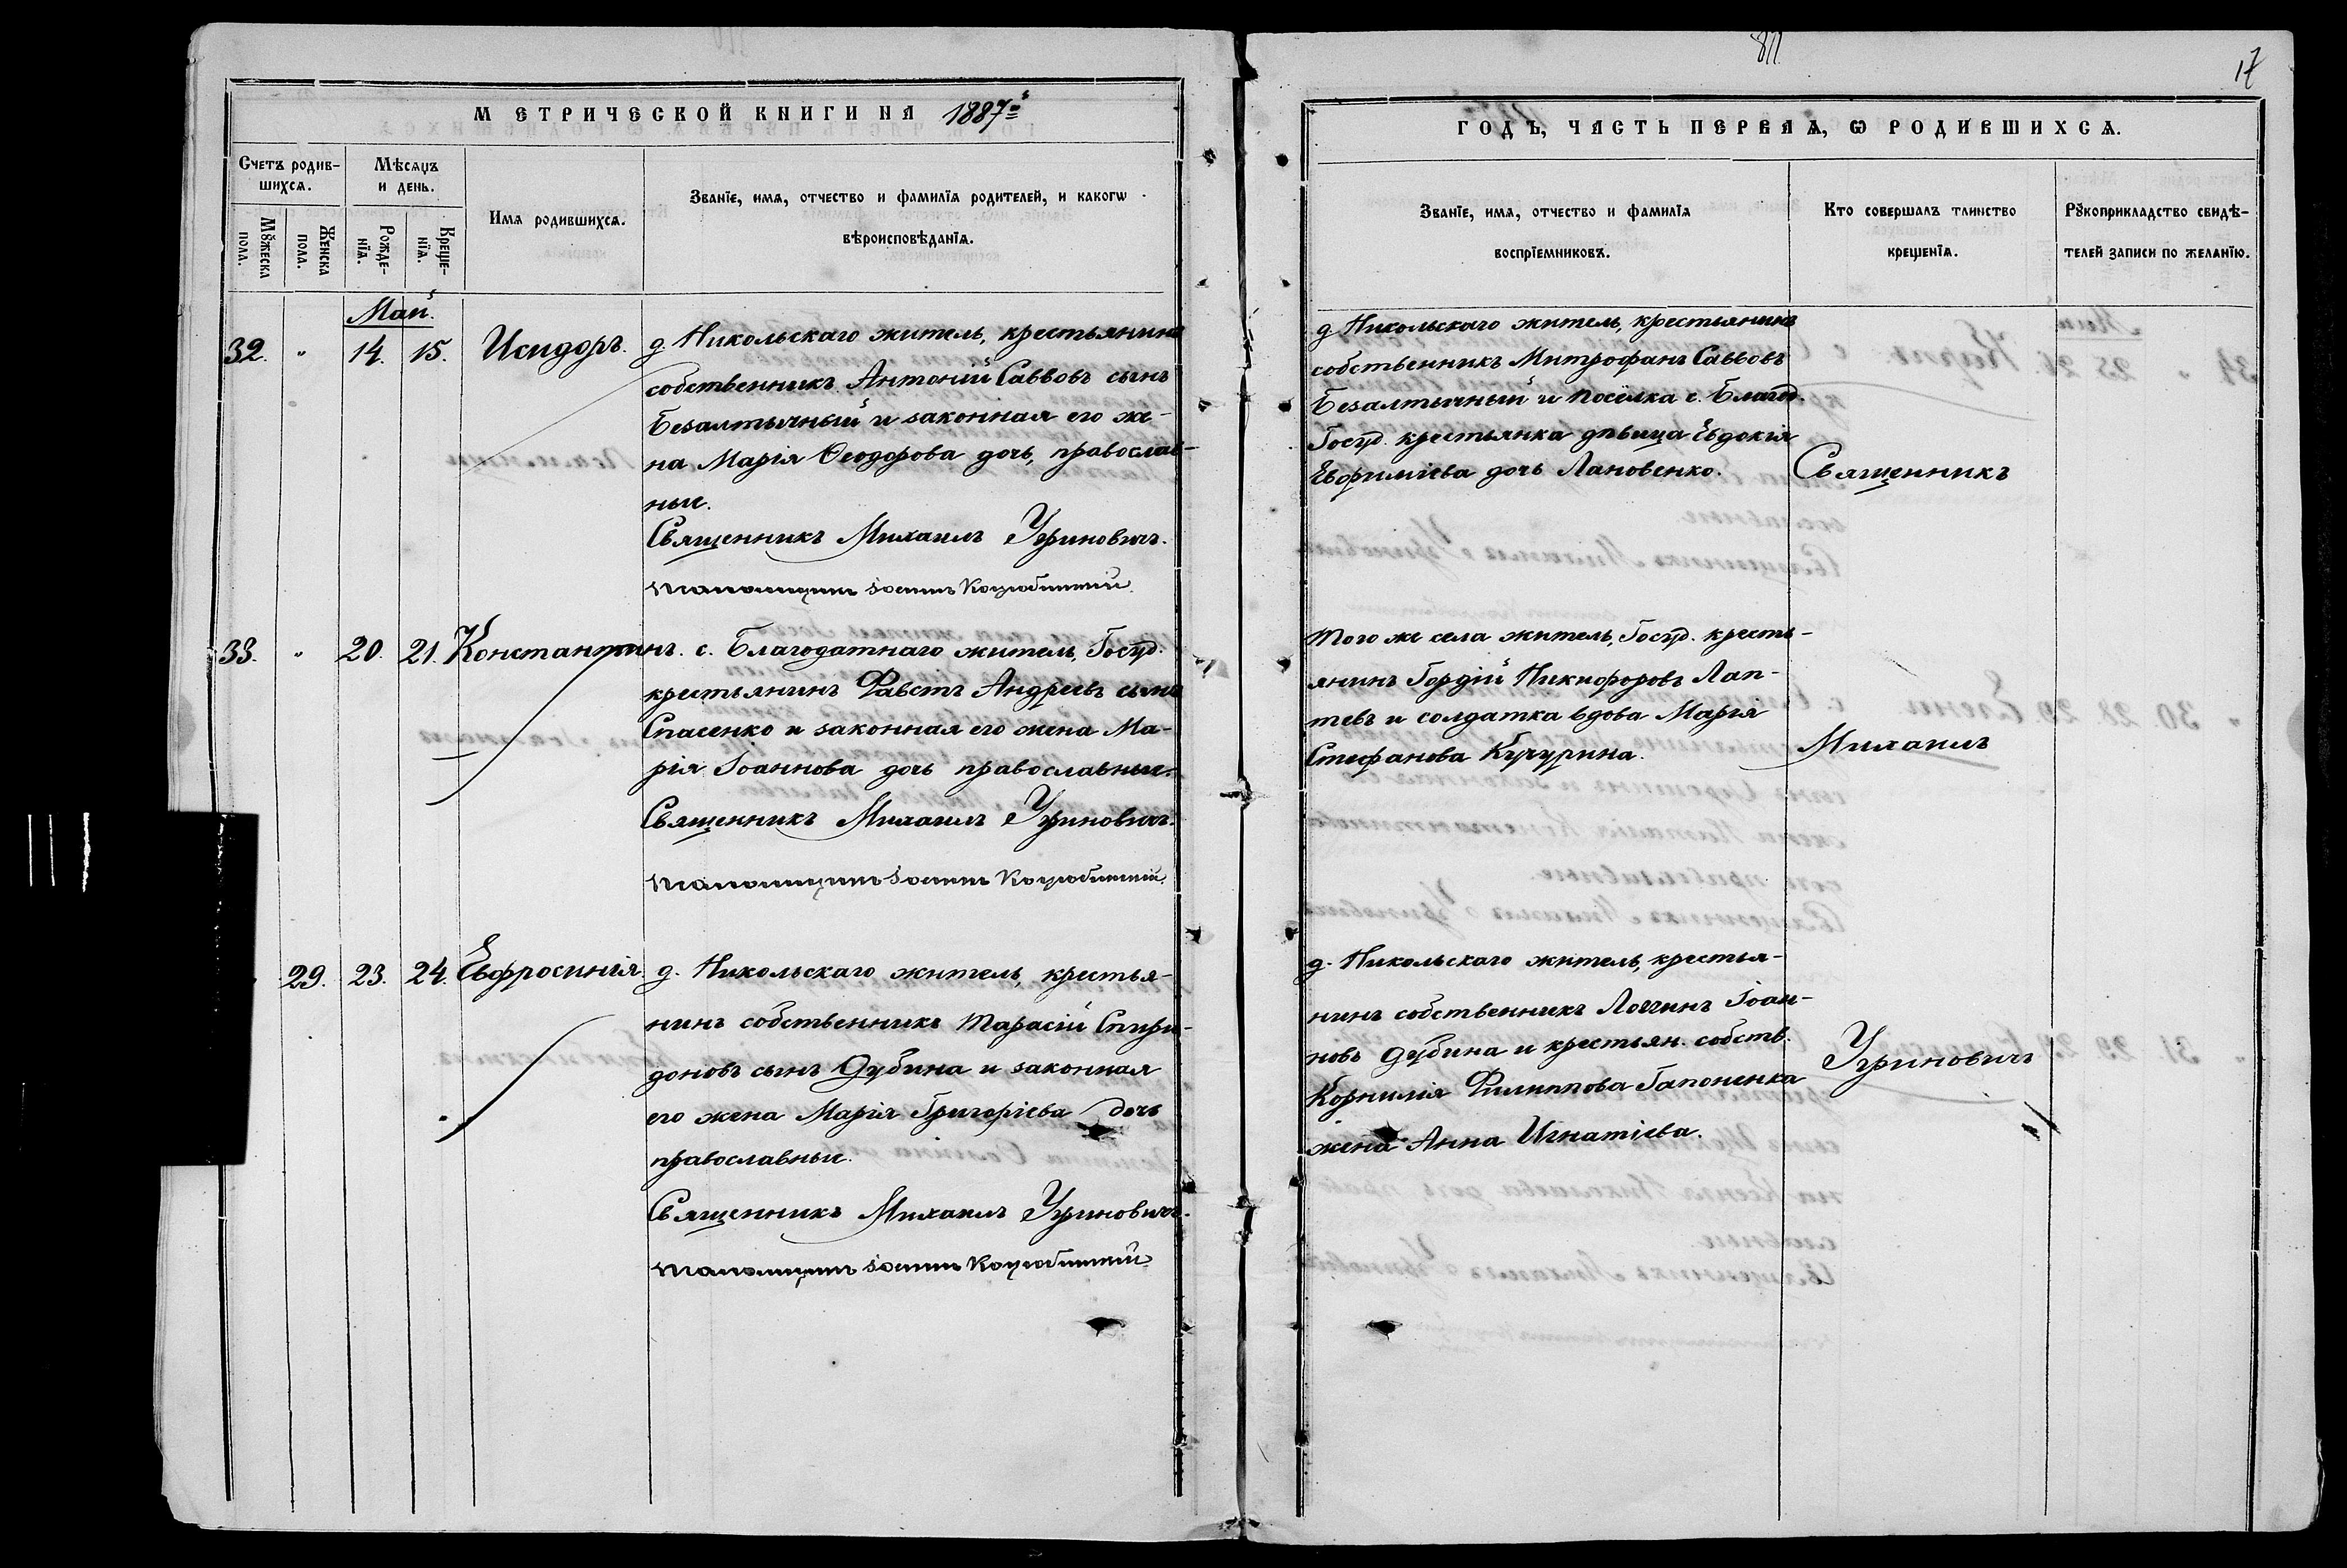 811
17
МЕТРИЧЕСКОЙ КНИГИ НА 1887й
ГОДЪ, ЧАСТЬ ПЕРВАЯ, Ѡ РОДИВШИХСѦ.
Счетъ родив-
шихсѧ.
Мѣсяцъ
и день.
Имѧ родившихсѧ.
Званїе, имѧ, отчество и фамилїѧ родителей, и какогѡ
вѣроисповѣданїѧ.
Мꙋжеска
пола.
Женска
пола.
Рожде-
нїѧ.
Креще-
нїѧ.
Званїе, имѧ, отчество и фамилїѧ
воспрїемниковъ.
Кто совершалъ таинство
крещенїѧ.
Рꙋкоприкладство свидѣ-
телей записи по желанїю.
Май.
32. " 14. 15. Исидоръ.
д. Никольскаго житель, крестьянинъ
собственникъ Антоній Саввовъ сынъ
Безалтычный и законная его же-
на Марія Ѳеодорова дочь, православ-
ные.
Священникъ Михаилъ Угриновичъ.
Коцюбинскій.
д. Никольскаго житель, крестьянинъ
собственникъ Митрофанъ Саввовъ
Безалтычный и посёлка с. Благод.
Госуд. крестьянка дѣвица Евдокія
Евфиміева дочь Лановенко.
Священникъ
33. " 20. 21. Константинъ.
с. Благодатнаго житель, Госуд.
крестьянинъ Фавстъ Андреевъ сынъ
Спасенко и законная его жена Ма-
рія Іоаннова дочь православные.
Священникъ Михаилъ Угриновичъ.
Коцюбинскій.
Того же села житель, Госуд. кресть-
янинъ Гордій Никифоровъ Лап-
тевъ и солдатка вдова Марія
Стефанова Кучурина.
Михаилъ
29. 23. 24. Евфросинія
д. Никольскаго житель, крестья-
нинъ собственникъ Тарасій Спири-
доновъ сынъ Дубина и законная
его жена Марія Григоріева дочь
православные.
Священникъ Михаилъ Угриновичъ.
Коцюбинскій
д. Никольскаго житель, крестья-
нинъ собственникъ Логгинъ Іоан-
новъ Дубина и крестьян. собств.
Корнилія Филиппова Гапоненка
жена Анна Игнатіева.
Угриновичъ